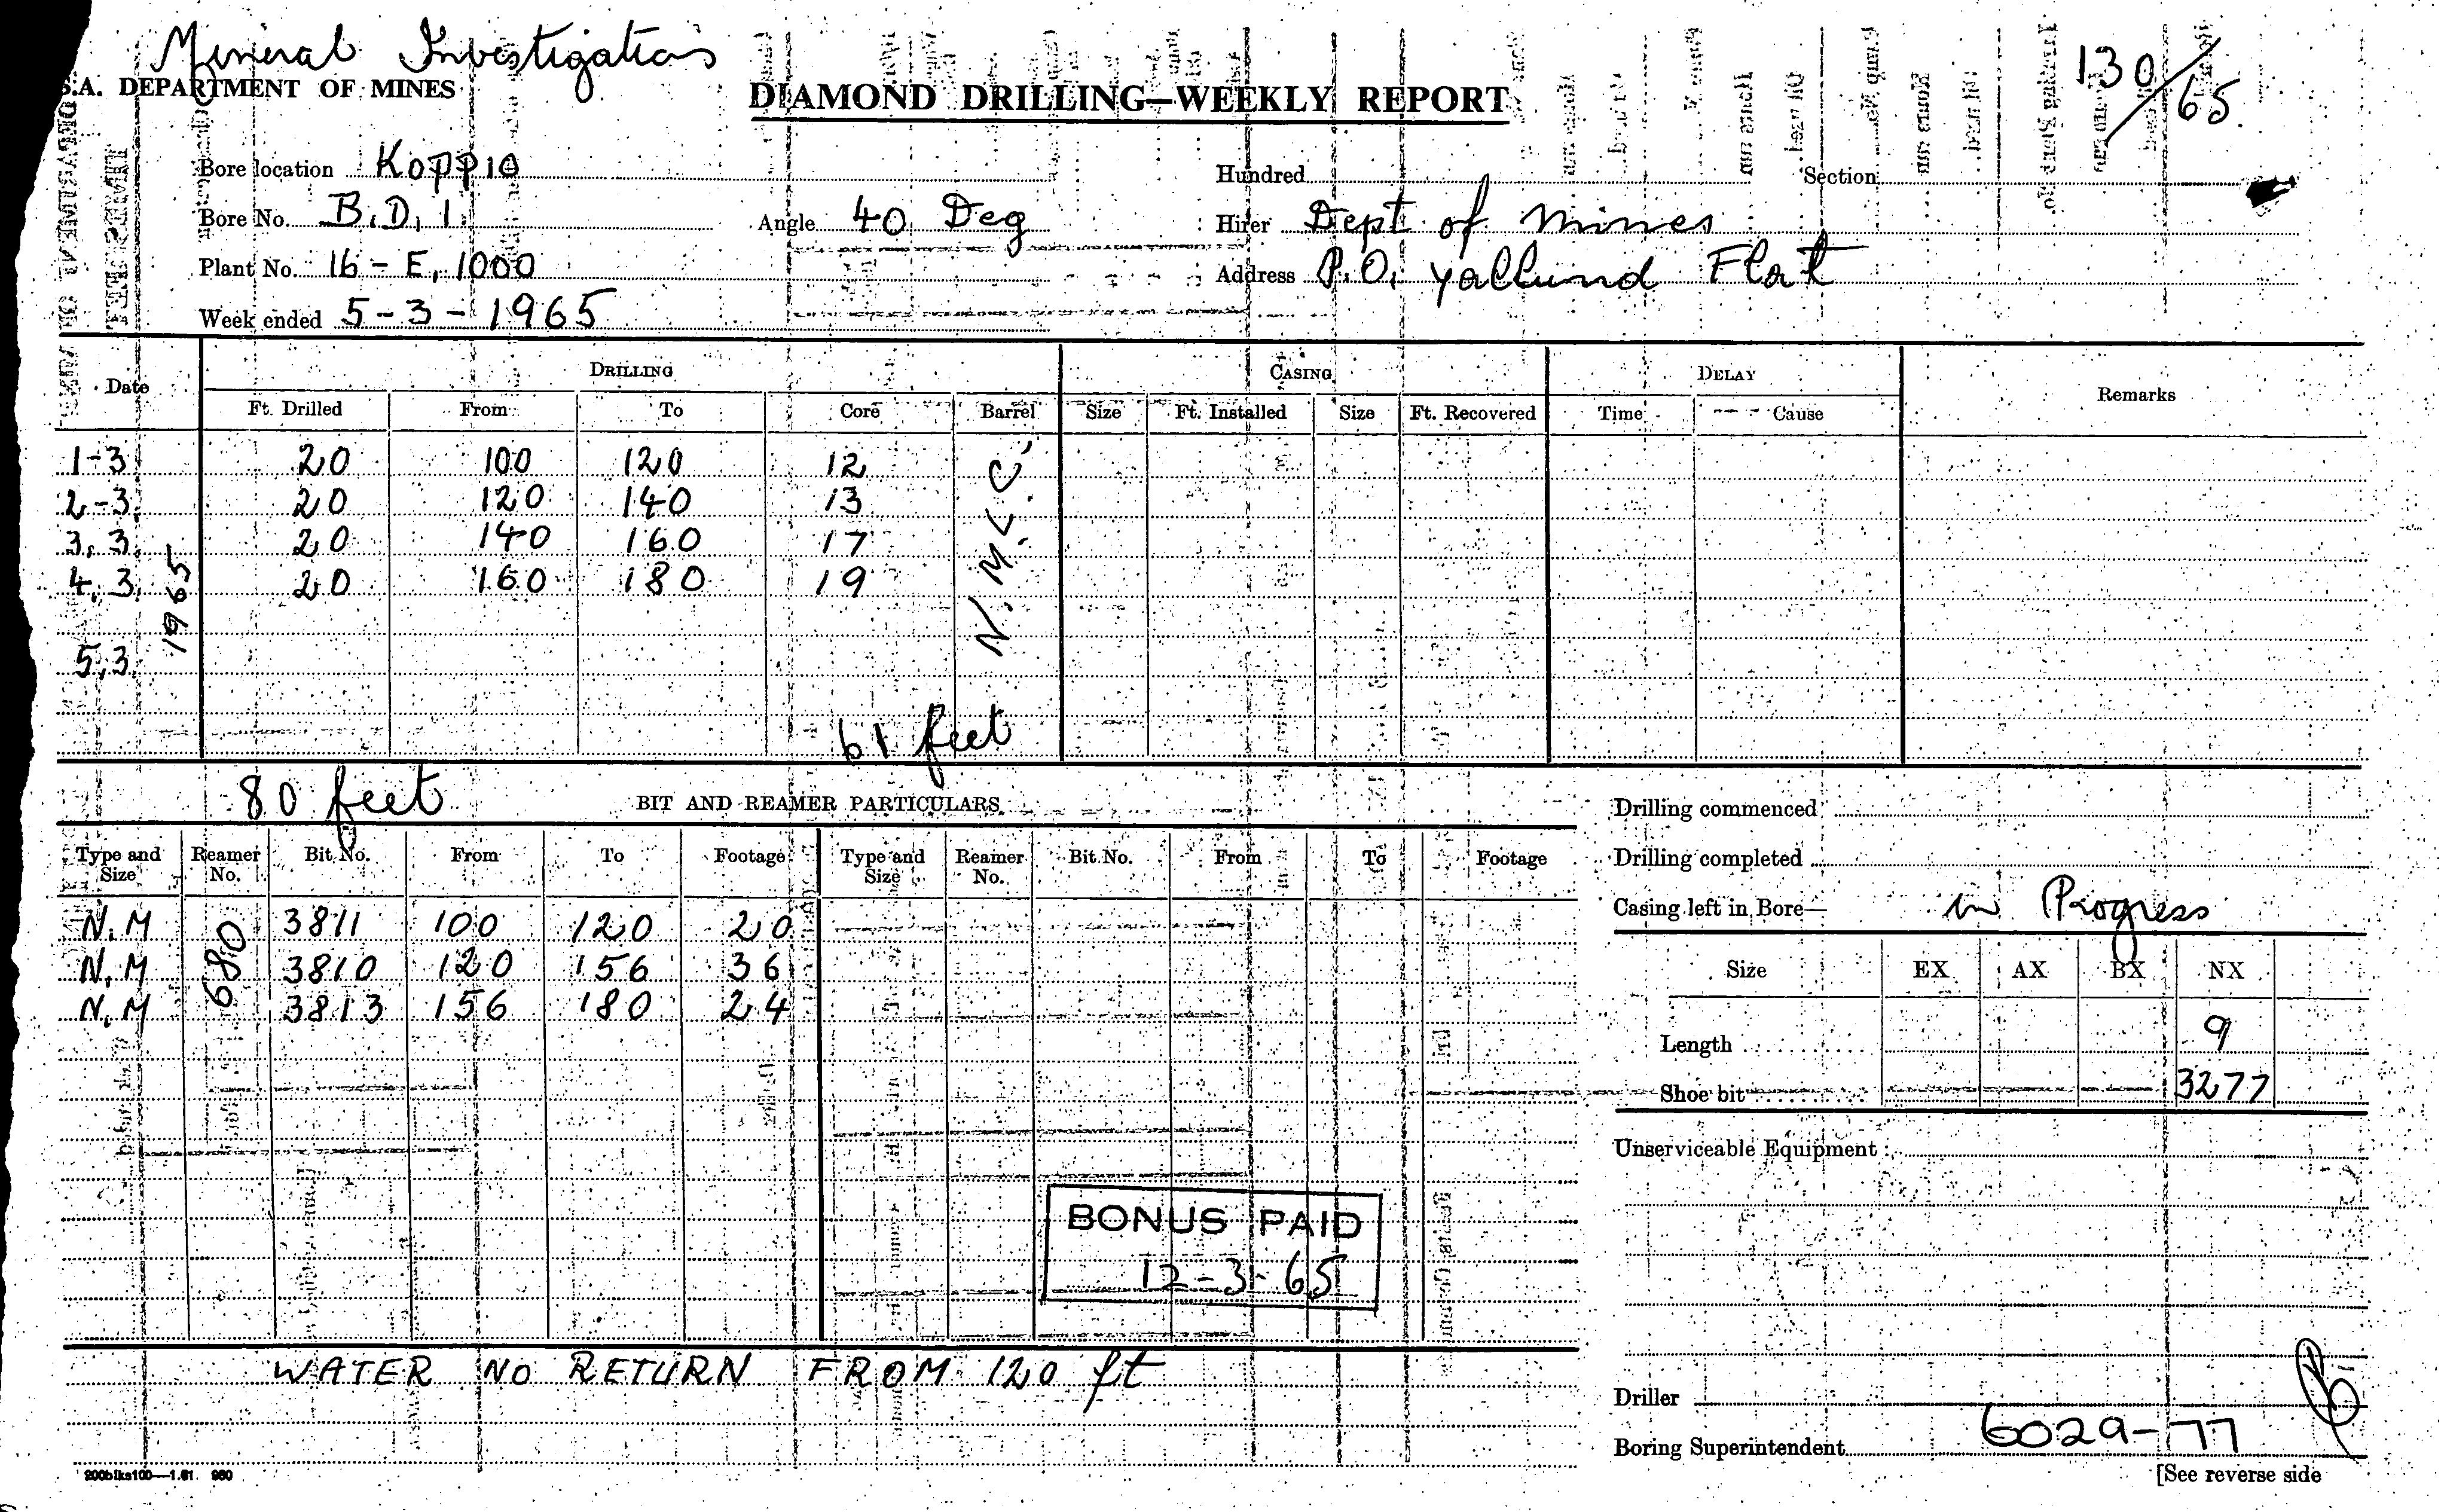 Mineral Investigations
S.A. DEPARTMENT OF MINES
DIAMOND DRILLING—WEEKLY REPORT
130/65
Bore location Koppio
Hundred Section
Bore No. B.D.1.
Angle 40 Deg
Hirer Dept of Mines
Plant No. 16-E.1000
Address P.O. Yallund Flat
Week ended 5-3-1965
Date DRILLING CASING DELAY Remarks
Ft. Drilled From To Core Barrel Size Ft. Installed Size Ft. Recovered Time Cause
1-3 20 100 120 12
2-3 20 120 140 13
3.3. 20 140 160 17
4.3. 20 160 180 19
5.3.
1965
N.M.L.C.
61 feet
80 feet
BIT AND REAMER PARTICULARS
Type and Size Reamer No. Bit No. From To Footage Type and Size Reamer No. Bit No. From To Footage
N.M 3811 100 120 20
N.M 3810 120 156 36
N.M 3813 156 180 24
680
Drilling commenced
Drilling completed
Casing left in Bore— in Progress
Size EX AX BX NX
Length 9
Shoe bit 3277
Unserviceable Equipment
BONUS PAID
12-3-65
WATER NO RETURN FROM 120 ft
Driller
Boring Superintendent 6029-77
200blks100—1.61. 980
[See reverse side